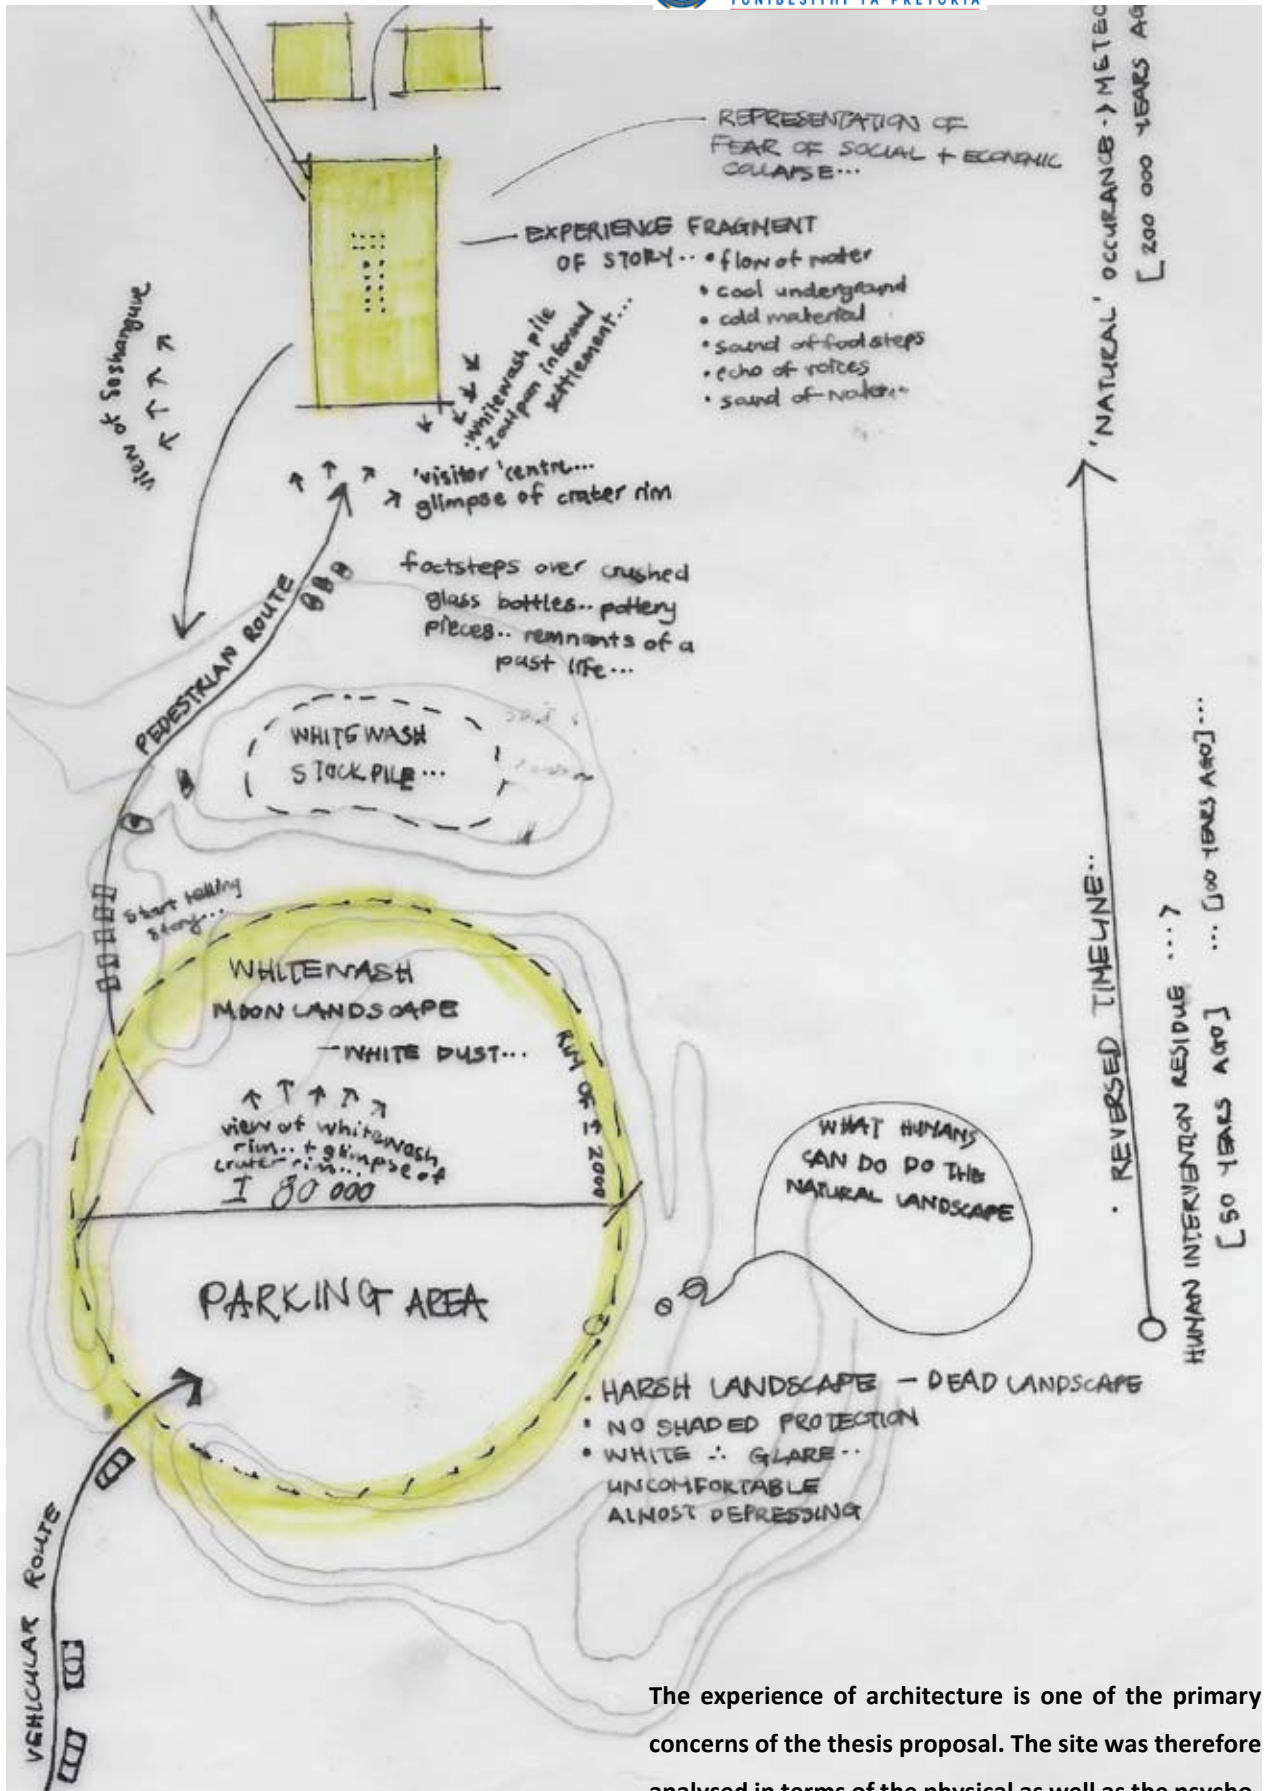 YUNIBESITHI YA PRETORIA
REPRESENTATION OF
FEAR OF SOCIAL + ECONOMIC
COLLAPSE...
EXPERIENCE FRAGMENT
OF STORY..
• flow of water
• cool underground
• cold material
• sound of footsteps
• echo of voices
• sound of water..
view of Soshanguve
. Whitewash pile
. Zoutpan informal
settlement...
'visitor' centre...
glimpse of crater rim
footsteps over crushed
glass bottles.. pottery
pieces.. remnants of a
past life...
PEDESTRIAN ROUTE
WHITEWASH
STOCKPILE...
start telling
story...
WHITEWASH
MOON LANDSCAPE
- WHITE DUST...
RIM OF
2000
view of whitewash
rim.. + glimpse of
crater rim...
80 000
PARKING AREA
WHAT HUMANS
CAN DO DO THE
NATURAL LANDSCAPE
. HARSH LANDSCAPE - DEAD LANDSCAPE
• NO SHADED PROTECTION
• WHITE ∴ GLARE..
UNCOMFORTABLE
ALMOST DEPRESSING
VEHICULAR ROUTE
'NATURAL' OCCURANCE -> METEO
[200 000 YEARS AG
. REVERSED TIMELINE..
HUMAN INTERVENTION RESIDUE ....>
[50 YEARS AGO] ... [100 YEARS AGO]...
The experience of architecture is one of the primary
concerns of the thesis proposal. The site was therefore
analysed in terms of the physical as well as the psycho-